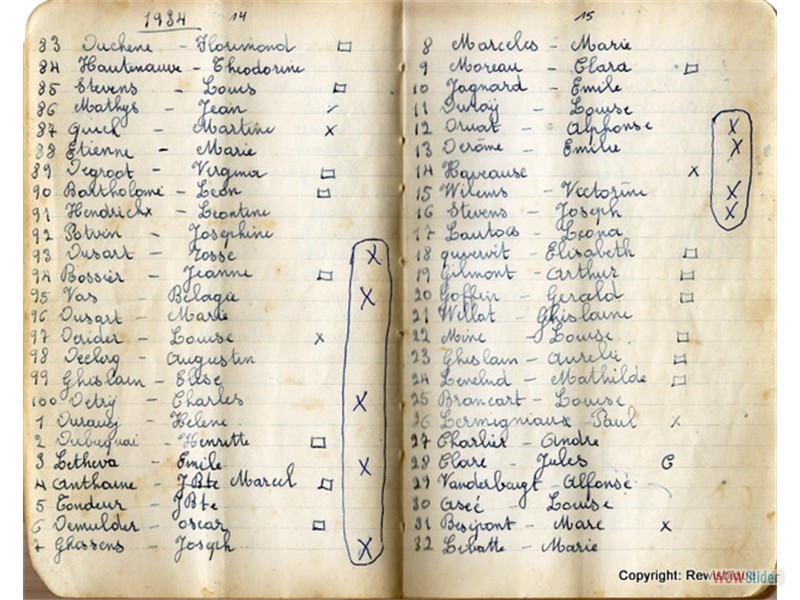 1934 14
83 Duchene - Florimond □
84 Hautenauve - Theodorine
85 Stevens - Louis □
86 Mathys - Jean ✓
87 Quick - Martine x
88 Etienne - Marie
89 Degroot - Virginia □
90 Bartholomé - Léon □
91 Hendrickx - Leontine
92 Potvin - Josephine
93 Dusart - Rosse X
94 Bossier - Jeanne □
95 Vas - Pélagie X
96 Dusart - Marie
97 Derider - Louise x
98 Declerg - Augustin
99 Ghislain - Elise
100 Detry - Charles X
1 - Helene
2 Dubuquai - Henrette □
3 Letheva - Emile X
4 Anthoine - JBte Marcel □
5 Tondeur - JBte
6 Demulder - oscar □
7 Ghyssens - Joseph X
15
8 Marceles - Marie
9 Moreau - Clara □
10 Jagnard - Emile
11 - Louise
12 Druart - Alphonse X
13 Derôme - Emilie X
14 Haveause x
15 Wilems - Victorine X
16 Stevens - Joseph X
17 - Leona
18 - Elisabeth □
19 Gilmont - Arthur □
20 Goffin - Gerald □
21 Willot - Ghislaine
22 Mine - Louise □
23 Ghislain - Aurelie □
24 Lenelud - Mathilde □
25 Brancart - Louise
26 Lermigniaux - Paul x
27 Charlier - Andre
28 Clare - Jules C
29 Vanderbaugt - Alfonse
30 aseé - Louise
31 Besipont - Marc x
32 Libotte - Marie
Copyright:
WOWSlider